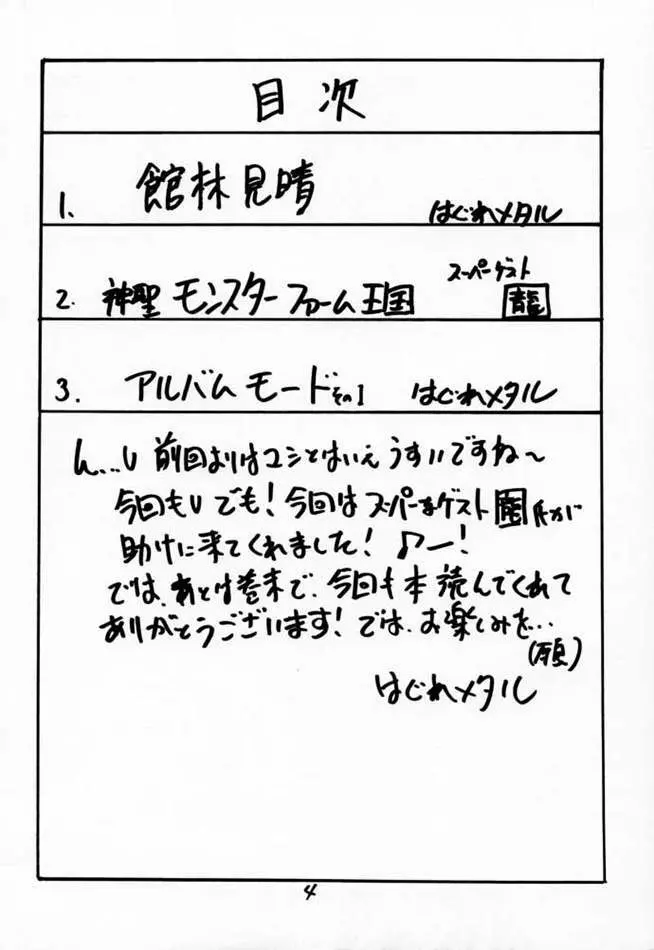 目次
1. 館林見晴 はぐれメタル
スーパーゲスト
2. 神聖モンスターファーム王国 龍
3. アルバムモードその1 はぐれメタル
ん…U 前回よりはマシとはいえうすいですね〜
今回もU でも!今回はスーパーなゲスト 氏が
助けに来てくれました!♪ー!
では、あとは巻末で、今回も本読んでくれて
ありがとうございます!では、お楽しみを…
(願)
はぐれメタル
4